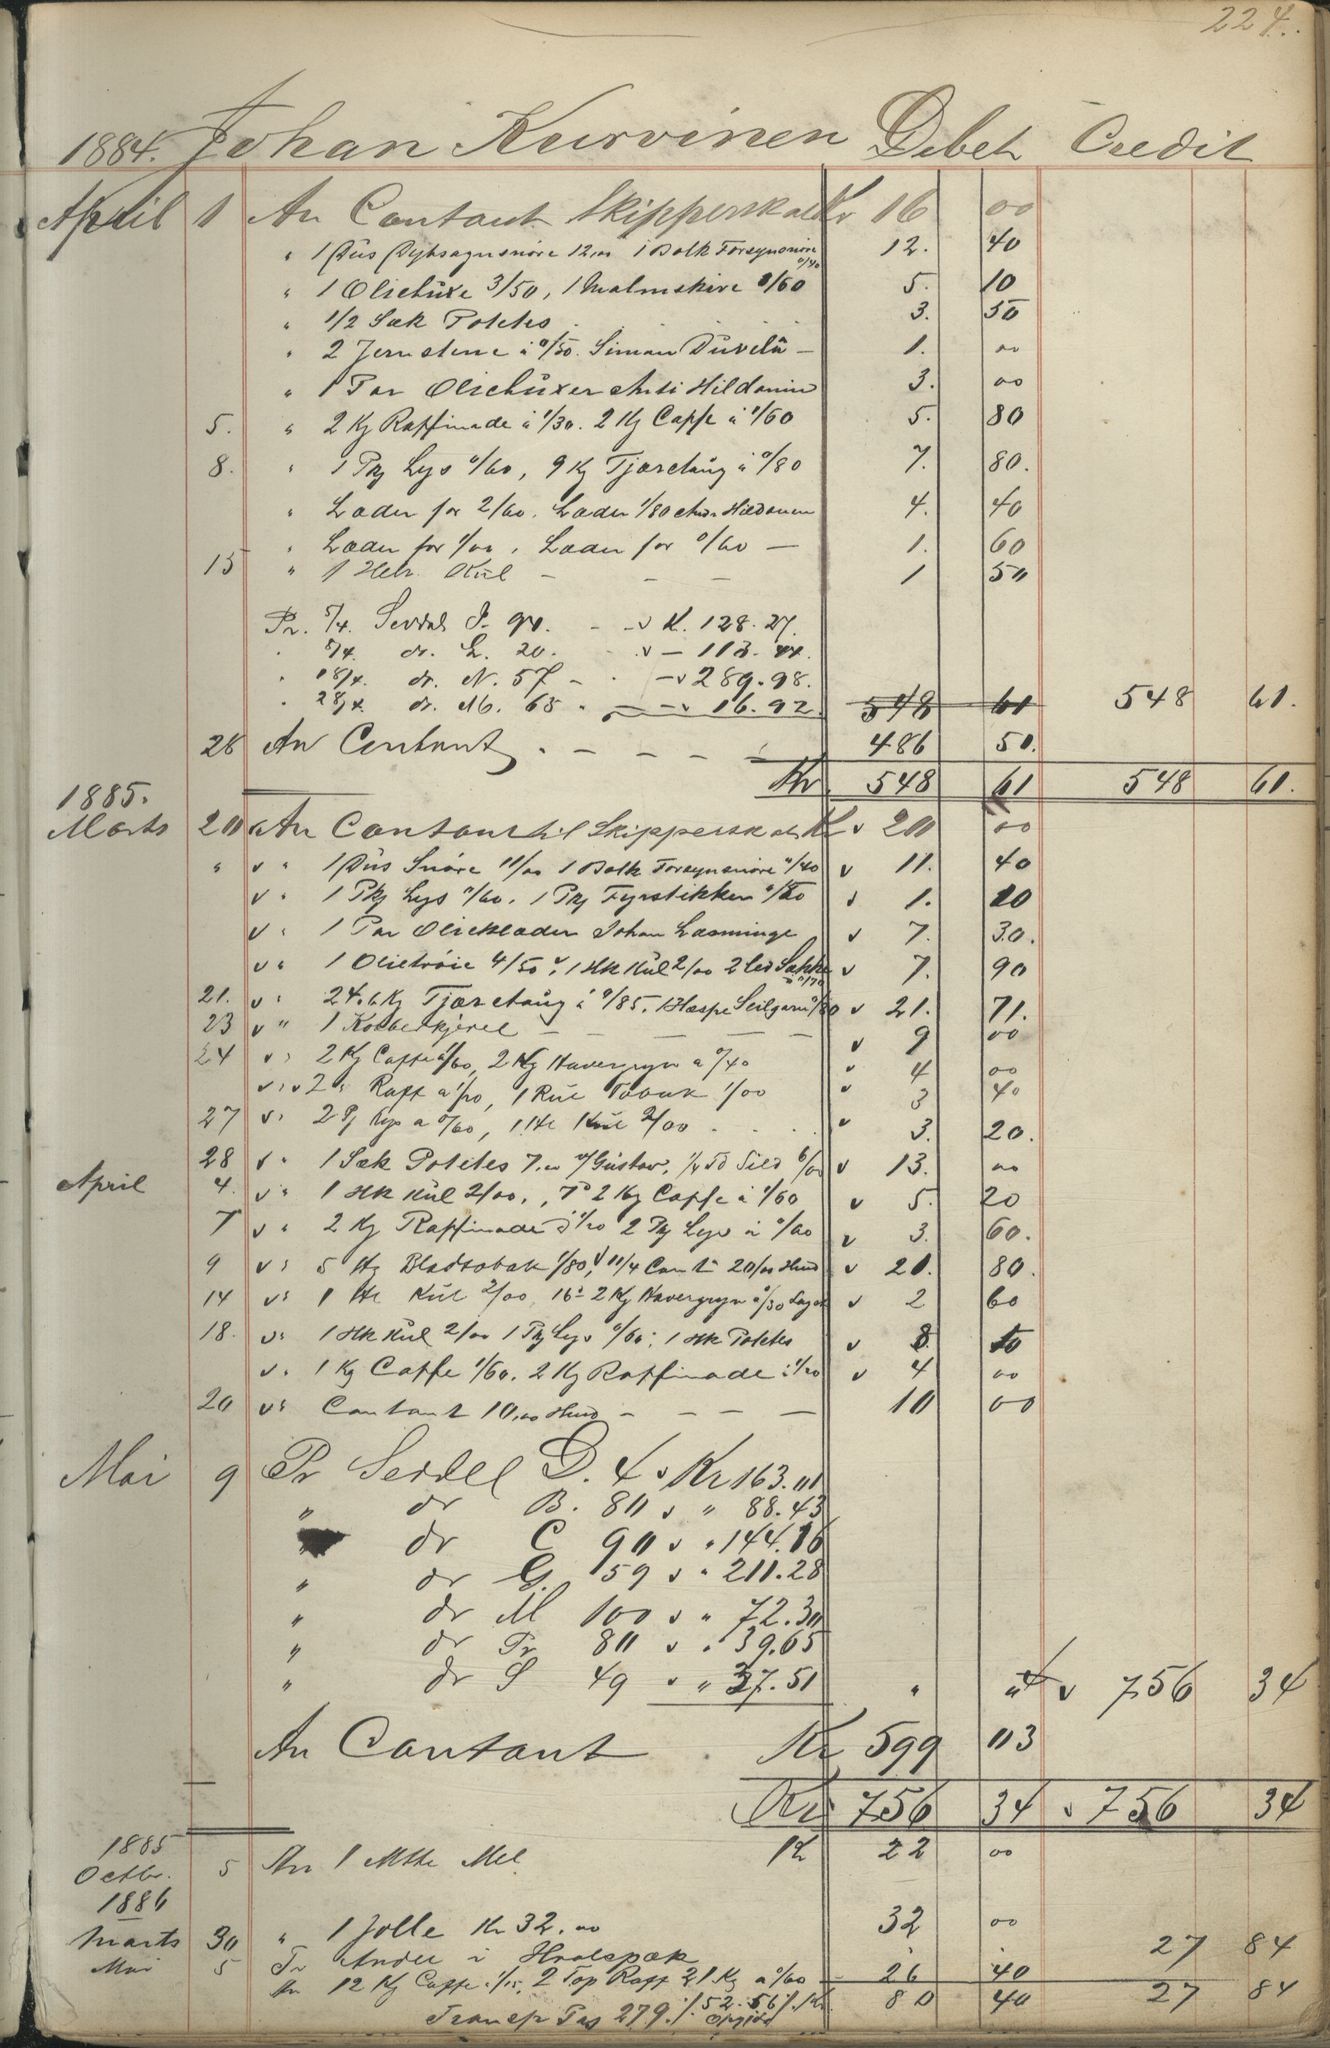 224.
1884. Johan Kurvinen Debet Credit
April 1 An Contant Skipperskat Kr 16 00
" 1 Dus Dybsagnsnöre 12,00 1 Bolk Forsynsnöre 0/40 12. 40
" 1 Oliebuxe 3/50, 1 Malmskive 1/60 5. 10
" 1/2 Sæk Potetes 3. 50
" 2 Jernstene à 0/50. Simon — 1. 00
" 1 Par Oliebuxer Anti Hildonin 3. 00
5. " 2 Kg Raffinade à 1/30. 2 Kg Caffe à 1/60 5. 80
8. " 1 Pk Lys 0/60, 9 Kg Tjæretaug à 0/80 7. 80.
" Læder for 2/60. Læder 1/80 Andr Hildonen 4. 40
" Læder for 1/00, Læder for 0/60 — 1. 60
15 " 1 Hek. Kul - - - 1 50
Pr. 5/4. Seddel S. 90. - - v K. 128. 27.
" 8/4. do. L. 20. - v — 113. 44.
" 18/4. do. N. 57 - - — v 289. 98.
" 28/4. do. M. 65 - — v 16. 92. 548 61 548 61.
28 An Contant - - - - - 486 50.
Kr 548 61 548 61.
1885.
Marts 20 An Contant til Skipperskat Kr v 20 00
" v " 1 Dus Snöre 11/00 1 Bolk Forsynsnöre 0/40 v 11. 40
v " 1 Pk Lys 0/60. 1 Pk Fyrstikker v 1. 10
v " 1 Par Olieklæder Johan Læsminge v 7. 30.
v " 1 Olietröie 4/50, 1 Hk Kul 2/00 2 Sække à 0/70 v 7. 90
21. v " 24.6 Kg Tjæretaug à 0/85. 1 Hæspe Seilgarn 0/80 v 21. 71.
23 v " 1 Kobberkjerel — — — — v 9 00
24 v " 2 Kg Caffe à 1/60, 2 Kg Havergryn a 0/40 v 4 00
v " v 2 " Raff a 1/20, 1 Rul Tobak 1/00 v 3 40
27 v " 2 P Lys a 0/60, 1 Hl Kul 2/00 . . . . v 3. 20.
28 v " 1 Sæk Potetes 7,00 v/ Gustav, 1/4 Td Sild 6/00 v 13. 00
April 4. v " 1 Hk Kul 2/00., 2 Kg Caffe à 1/60 v 5. 20
7 v " 2 Kg Raffinade à 1/20 2 Pk Lys à 0/60 v 3. 60.
9 v " 5 Hg Bladtobak 1/80, 11/4 Cont 20/00 v 21. 80.
14 v " 1 Hl Kul 2/00, 16 2 Kg Havergryn à 0/30 v 2 60
18. v " 1 Hk Kul 2/00 1 Pk Lys 0/60. 1 Hk Potetes v 8. 10
v " 1 Kg Caffe 1/60. 2 Kg Raffinade à 1/20 v 4 00
20 v " Contant 10,00 — — — — 10 00
Mai 9 Pr Seddel D. 4 v Kr 163.01
" do B. 80 v " 88.43
do C 90 v " 144.16
" do G. 59 v " 211.28
" do M 100 v " 72.30
" do Pr 80 v " 39.65
" do S 49 v " 37.51 " " v 756 34
An Contant Kr 599 03
Kr 756 34 v 756 34
1885
Octbr. 5 An 1 Mtte Mel Kr 22 00
1886
Marts 30 " 1 Jolle Kr 32.00 32 00
Mai 5 Pr Andel i Hvalspæk 27 84
An 12 Kg Caffe 1/15, 2 Top Raff 21 Kg a 0/60 26 40
80 40 27 84
Transp Pag 279. ./. 52.56 ./. Kr